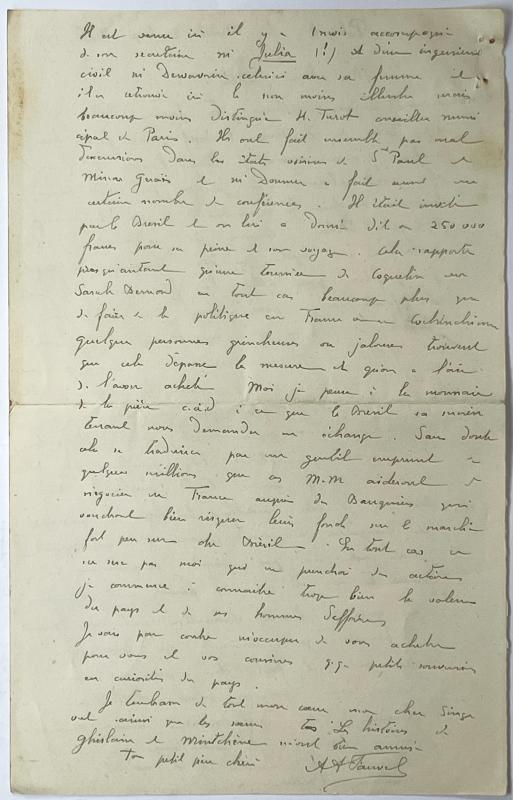 Il est venu ici il y a 1 mois accompagné
de son secrétaire Mr Julia (!) et d'un ingénieur
civil Mr sa femme et
ici le non moins illustre mais
beaucoup moins distingué H. Turot conseiller muni
cipal de Paris. Ils ont fait ensemble pas mal
d'excursions dans les états voisins de St Paul et
Minas Geraës et Mr Doumer a fait aussi un
certain nombre de conférences. Il était invité
par le Brésil et on lui a donné dit on 250 000
francs pour sa peine et son voyage. Cela rapporte
presqu'autant qu'une tournée de Coquelin ou
Sarah Bernard en tout cas beaucoup plus que
de faire de la politique en France ou en Cochinchine
Quelques personnes grincheuses ou jalouses trouvent
que cela dépasse la mesure et qu'on a l'air
de l'avoir acheté. Moi je pense à la monnaie
de la pièce c.a.d. à ce que le Brésil va main
tenant nous demander en échange. Sans doute
cela se traduira par un gentil emprunt de
quelques millions que ces M.M. aideront à
négocier en France auprès des Banquiers qui
voudront bien risquer leurs fonds sur le marché
fort peu sur du Brésil. En tout cas ce
ne sera pas moi qui en prendrai des actions
je commence à connaître trop bien la valeur
du pays et de ses hommes d'affaires.
Je vais par contre m'occuper de vous acheter
pour vous et vos cousines q.q. petits souvenirs
en curiosités du pays.
Je t'embrasse de tout mon cœur mon cher Singe
vert ainsi que les sœurs. Les histoires de
Ghislain et m'ont bien amusé
Ton petit père chéri A A Fauvel